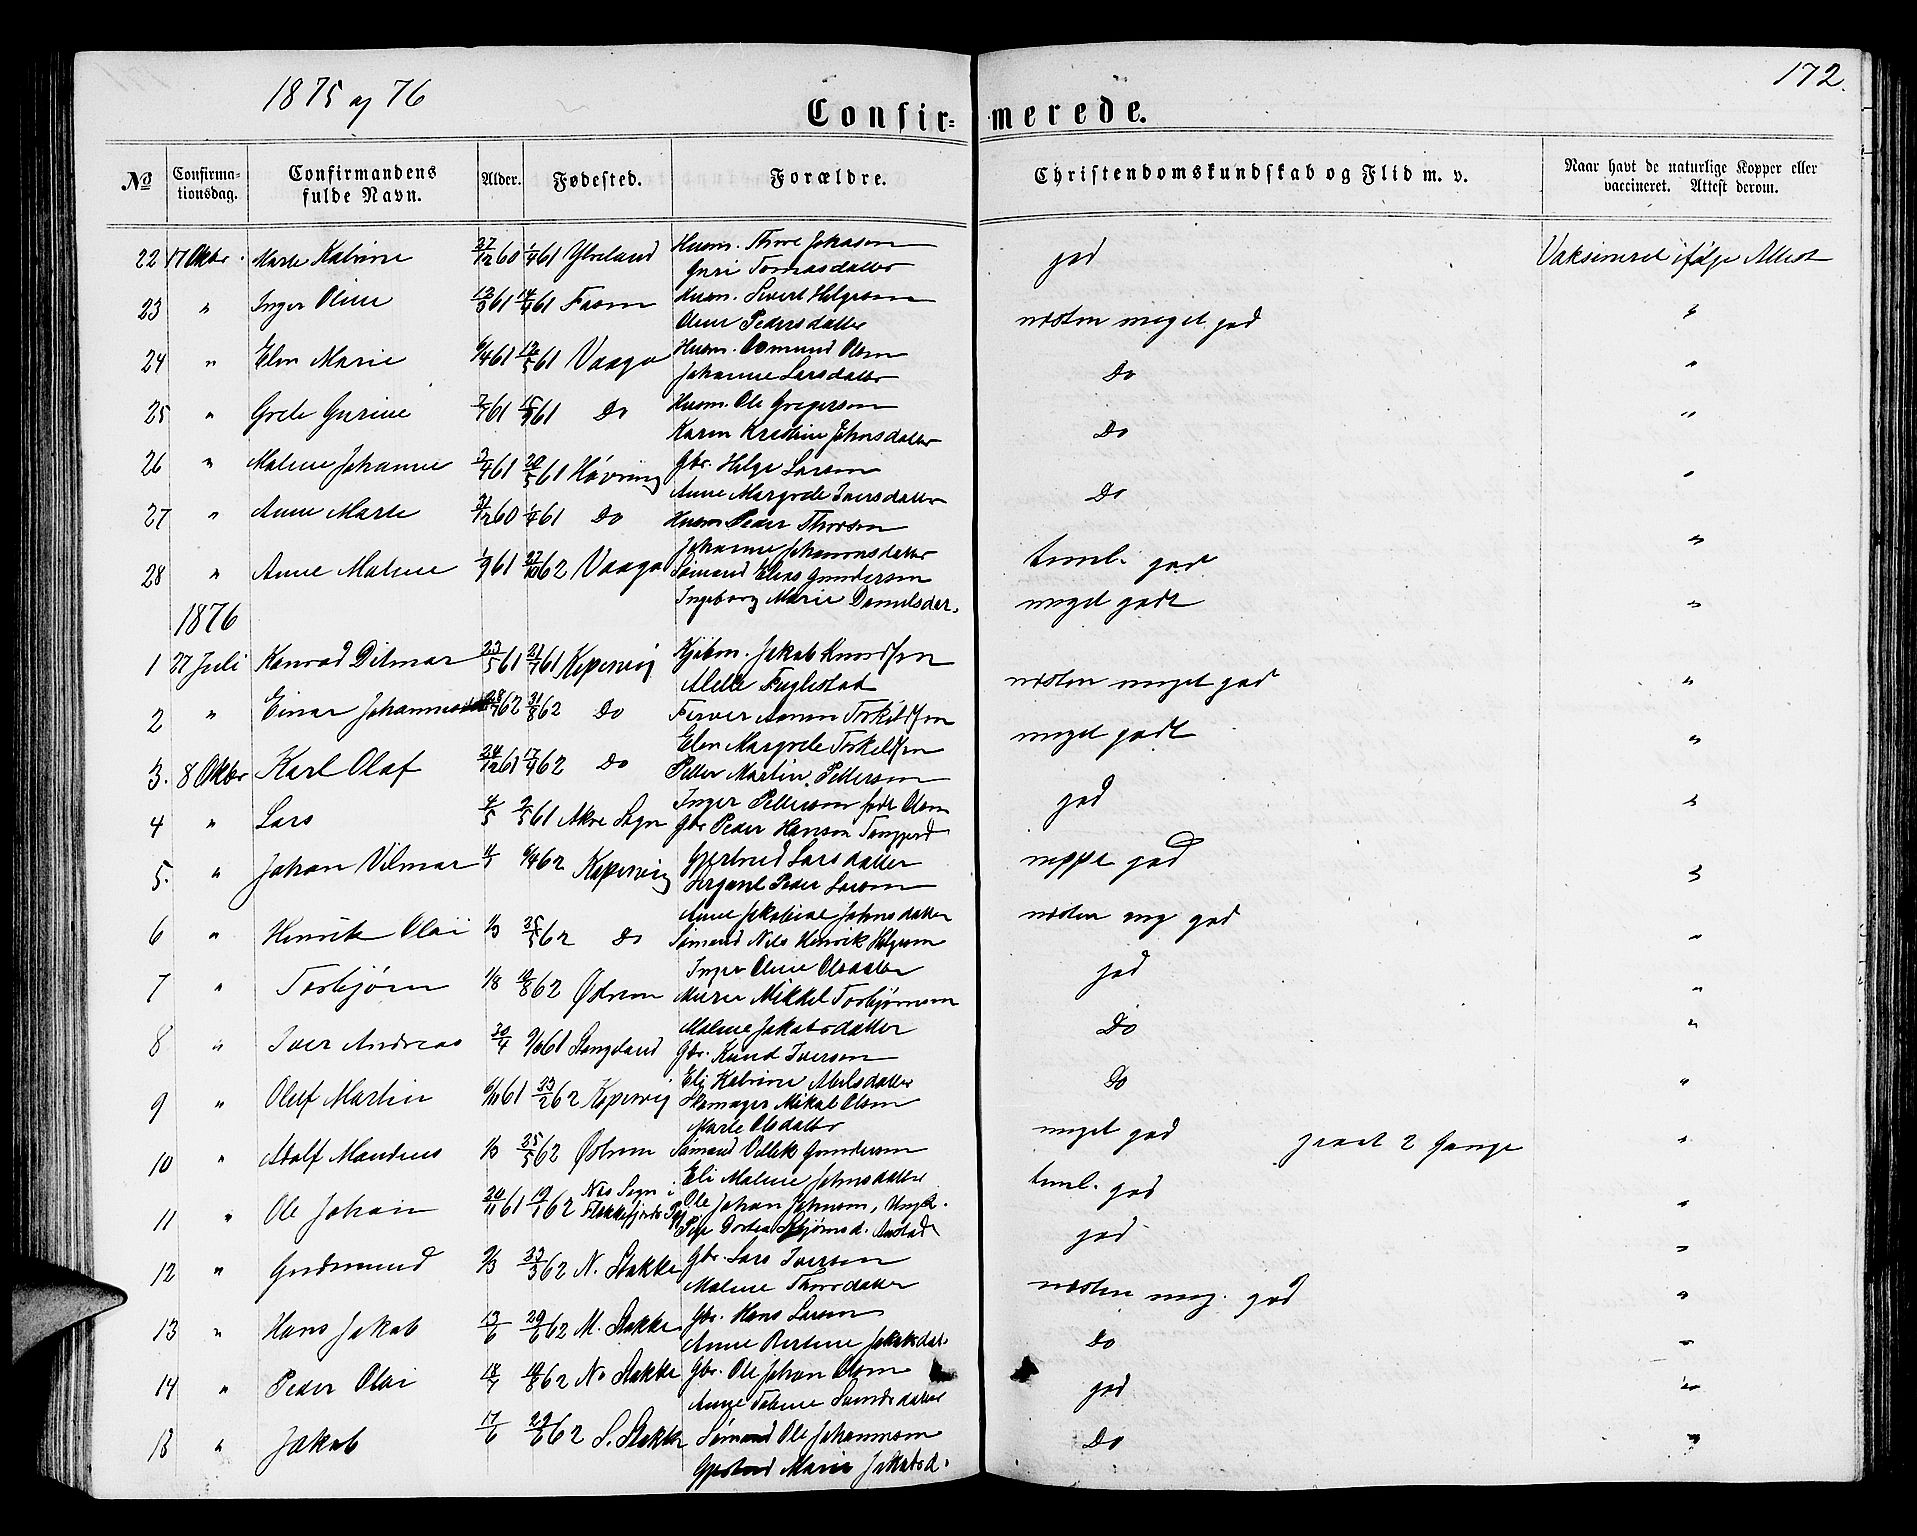 1875 og 76
172.
Confir= merede.
No Confirmationsdag. Confirmandens fulde Navn. Alder. Fødested. Forældre. Christendomskundskab og Flid m. v. Naar havt de naturlige Kopper eller vaccineret. Attest derom.
22 17 Oktbr. Marte Katrine 27/12 60 1/4 61 Husm. Thore Johnsen god Vaksineret ifølge Attest
Guri Tormasdatter
23 " Inger Oline 12/3 61 14/4 61 Faren Husm. Sivert Helgesen næsten meget god "
Oline Pedersdatter
24 " Elen Marie 6/4 61 12/5 61 Vaage Husm. Osmund Olsen Do "
Johanne Larsdatter
25 " Grete Gurine 61 61 Do Husm. Ole Gregersen Do "
Karen Kristine Johnsdatter
26 " Malene Johanne 3/4 61 20/5 61 Høvring Gbr. Helge Larsen Do "
Anne Margrete Iversdatter
27 " Anne Marte 31/12 60 1/4 61 Do Husm Peder Thorsen teml. god "
Johanne Johannesdatter
28 " Anne Malene 1/9 61 27/10 62 Vaage Sømand Elias Gundersen meget godt "
Ingeborg Marie Danielsdtr.
1876
1 27 Juli Konrad Ditmar 23/5 61 21/7 61 Kopervig Kjøbm. Jakob Knudsen næsten meget god "
Alette Fuglestad
2 " Einar Johannes 62 31/8 62 Do Farver Torkildsen meget godt "
Elen Margrete Torkildsen
3. 8 Oktbr Karl Olaf 24/12 61 17/4 62 Do Petter Martin Pettersen god "
Inger Pettersen født Olsen
4 " Lars 4/5 9/5 61 Akre Sogn Gbr Peder Hansen neppe god "
Gjertrud Larsdatter
5. " Johan Vilmar 6/4 62 Kopervig Sergent Peder Larsen næsten meg god "
Anne Jakobine Johnsdatter
6 " Henrik Olai 1/3 25/5 62 Do Sømand Nils Henrik Helgesen god "
Inger Oline Olsdatter
7 " Torbjørn 1/8 10/8 62 Østrem Murer Mikkel Torbjørnsen Do "
Malene Jakobsdatter
8 " Iver Andreas 30/4 61 Stangeland Gbr. Knud Iversen Do "
Eli Katrine Abelsdatter
9 " Oluf Martin 6/10 61 23/2 62 Kopervig Skomager Mikal Olsen meget god "
Marte Olsdatter
10 " Adolf Mandius 1/3 25/5 62 Østrem Sømand Villik Gundersen teml. god prøvet 2 Gange "
Eli Malene Johnsdatter
11 " Ole Johan 20/11 61 19/1 62 Næs Sogn i Flekkefjords Pgj Ole Johan Johnsen, Ungk. god "
Pige Dortea
12 " Gudmund 9/3 23/3 62 N. Stakke Gbr. Lars Iversen næsten meg. god "
Malene Thorsdatter
13 " Hans Jakob 13/6 29/6 62 M. Stakke Gbr. Hans Larsen Do "
Anne Bertine Jakobsdat.
14 " Peder Olai 18/7 10/8 62 N. Stakke Gbr. Ole Johan Olsen god "
Anne Taline
15 " Jakob 17/6 29/6 62 S. Stakke Sømand Ole Johannesen Do "
Gjertrud Marie Jakobsd.